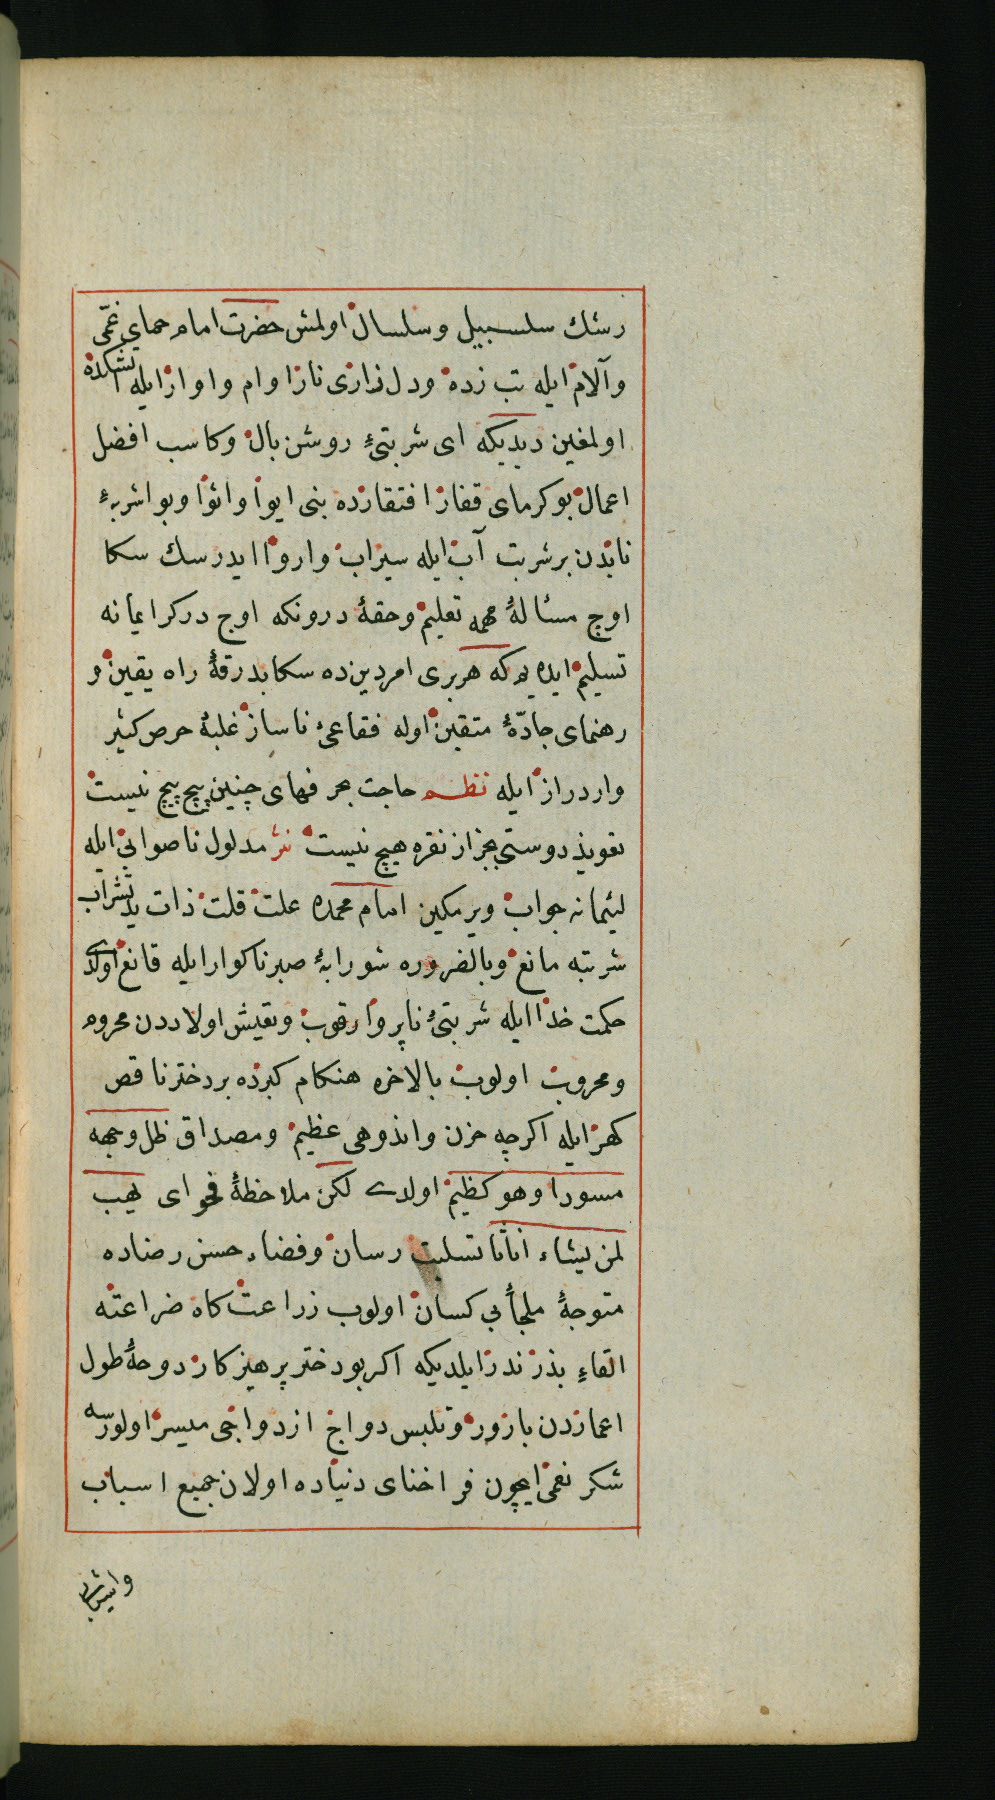 رشك سلسبيل وسلسال اولمش حضرت امام حماى غمّى
وآلام ايله تب زده ودل زارى نازا وام واوار ايله آتشكده
اولمغين ديديكه اى شربتئ روشن بال وكاسب افضل
اعمال بو كرماى قفار افتقارده بنى ايوا واثوا وبو اشربۀ
نابدن بر شربت آب ايله سيراب واروا ايدرسك سكا
اوچ مسئالۀ مهمه تعليم وحقۀ درونكه اوچ در كرايمانه
تسليم ايده يم كه هر برى امر دين ده سكا بدرقۀ راه يقين و
رهنماى جادّۀ متقين اوله فقاعئ ناساز غلبۀ حرص كثير
وار دراز ايله نظم حاجت بحرفهاى چنين پيچ پيچ نيست
تعويذ دوستى بجز از نقره هيچ نيست نثر مدلول ناصوابى ايله
لئيمانه جواب ويرمكين امام محمده علت قلت ذات يد شراب
شربته مانع وبالضروره شورابۀ صبر ناكوار ايله قانع اولدى
حكمت خدا ايله شربتئ ناپروا رقوب وبقيش اولاددن محروم
ومحروب اولوب بالاخره هنكام كبرده بر دختر ناقص
كهر ايله اكرچه حزن واندوهى عظيم ومصداق ظل وجهه
مسودا وهو كظيم اولدى لكن ملاحظۀ فحواى يهب
لمن يشاء اناثا تسليت رسان وفضاء حسن رضاده
متوجۀ ملجأ بى كسان اولوب زراعت كاه ضراعته
القاءِ بذر نذر ايلديكه اكر بو دختر پرهيزكار دوحۀ طول
اعماردن بارور وتلبس دواج ازدواجى ميسر اولورسه
شكر نعمى ايچون فراخناى دنياده اولان جميع اسباب